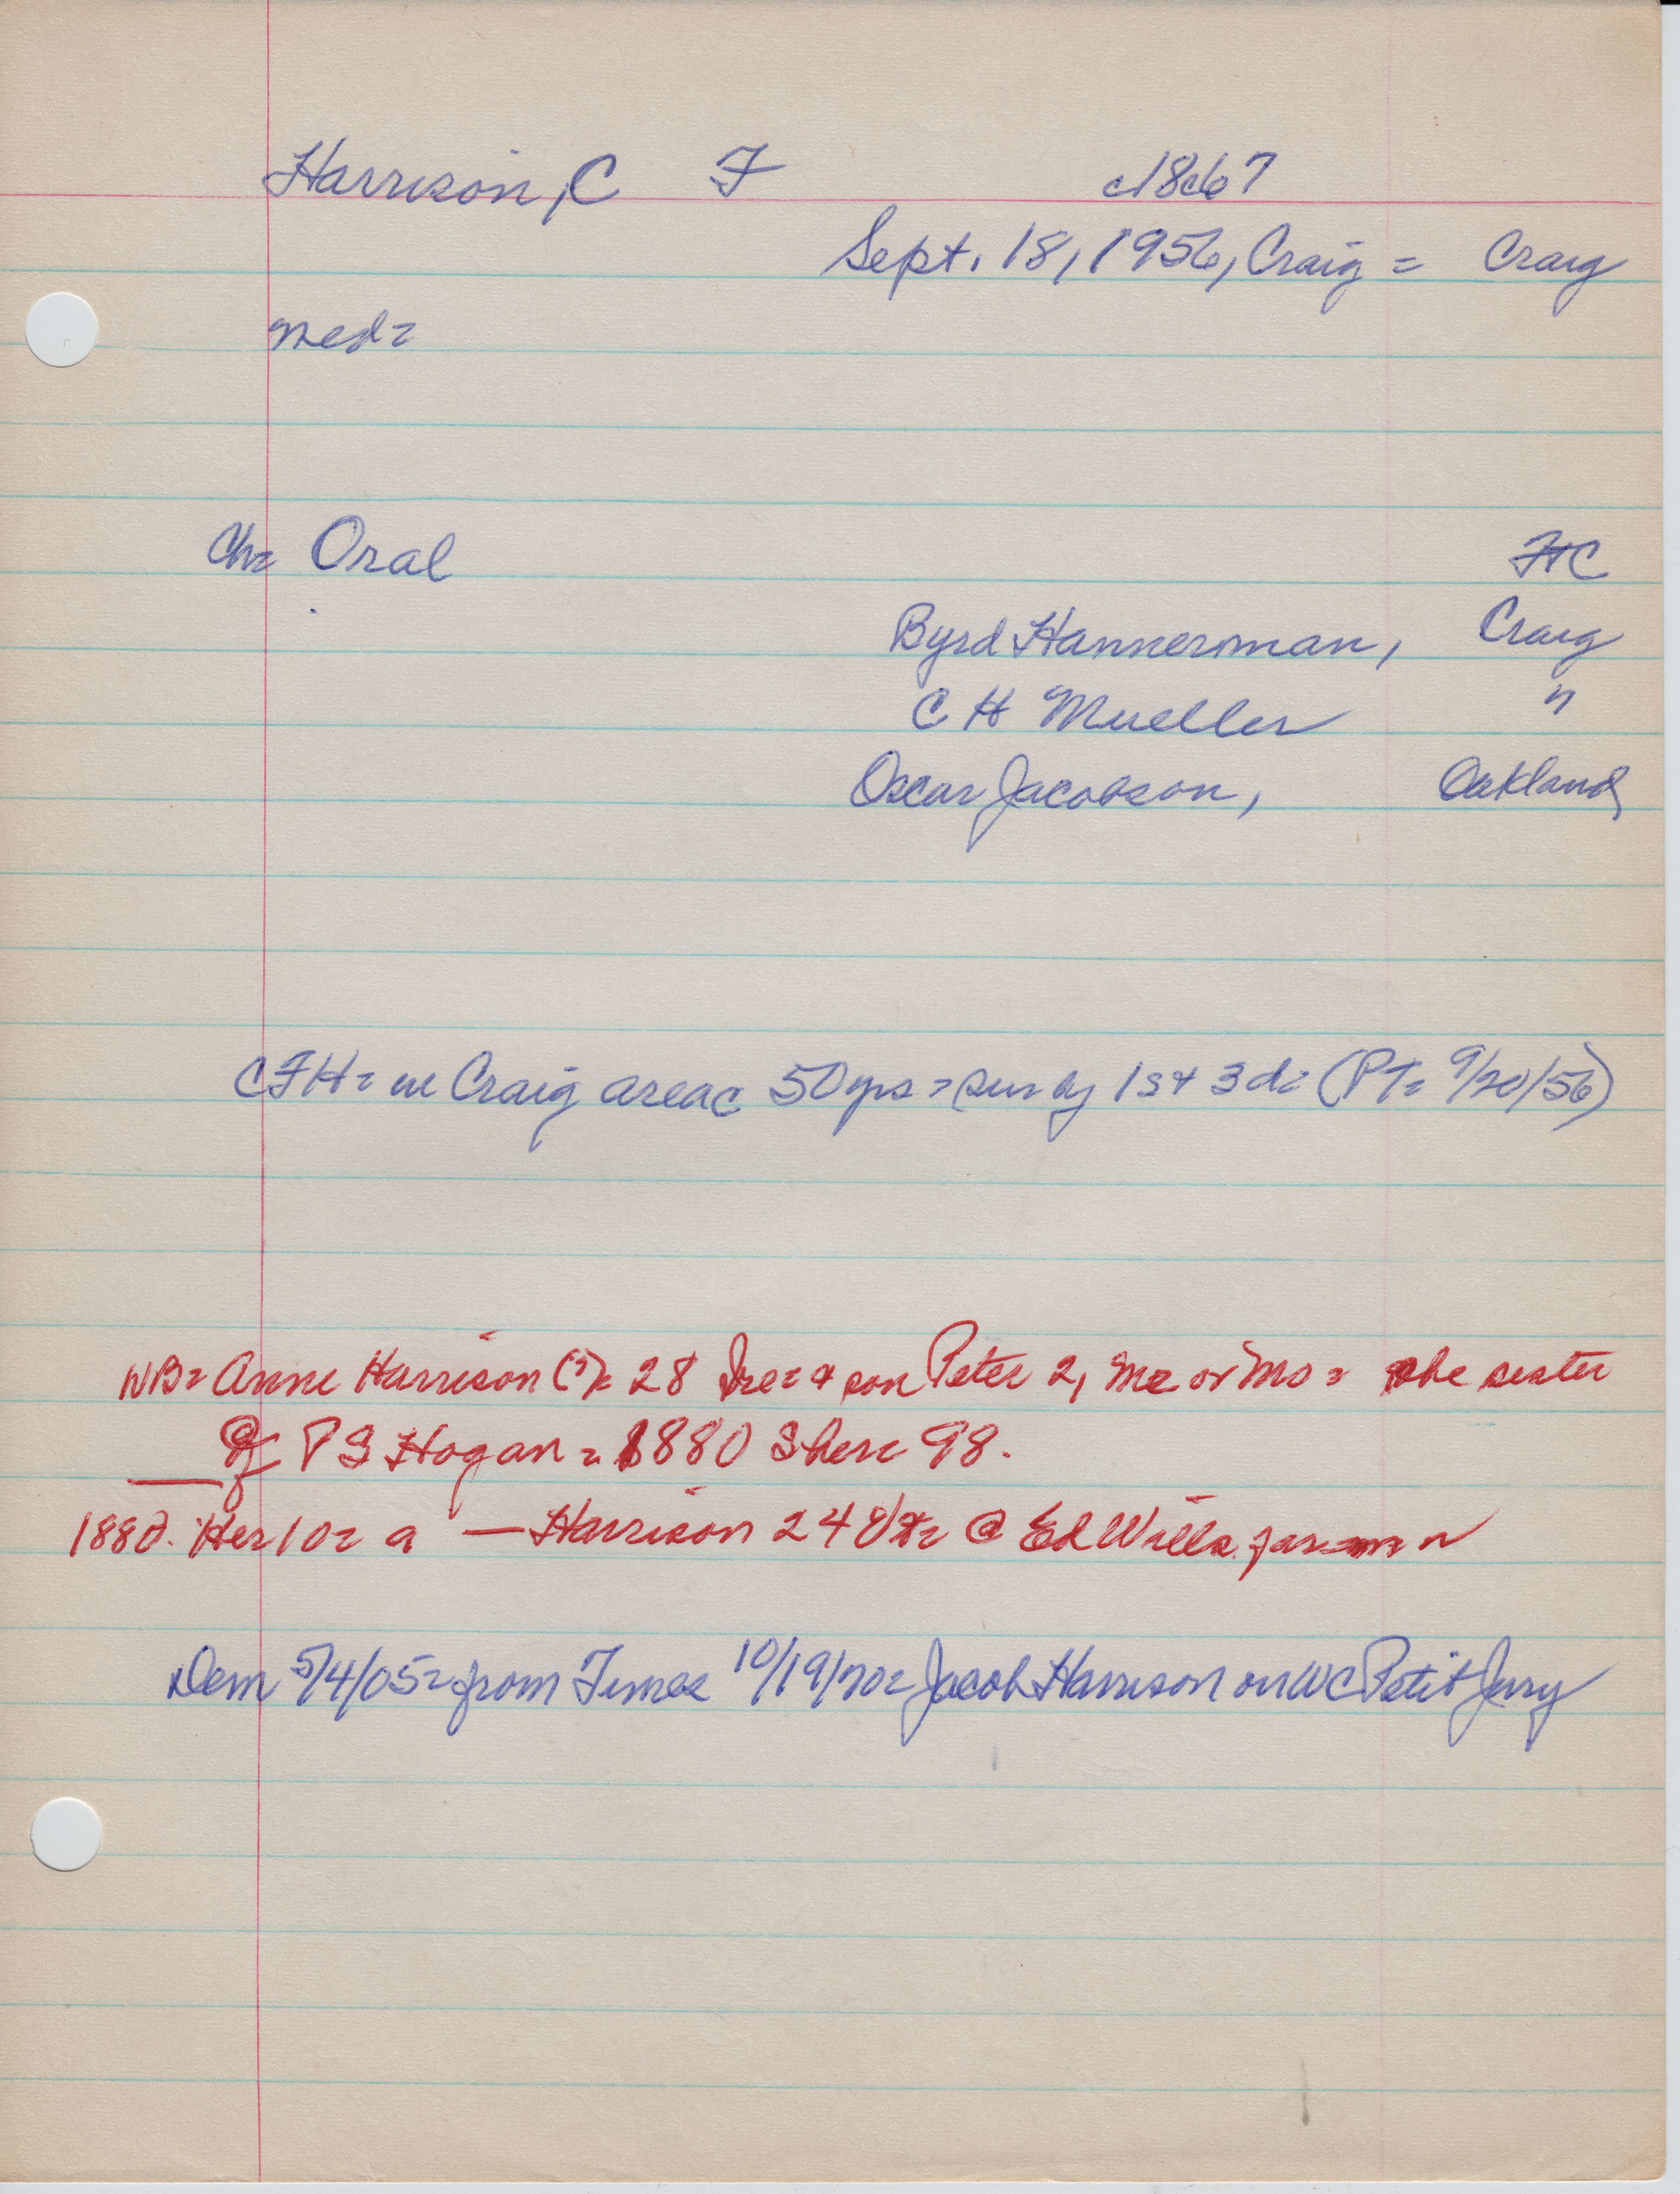 Harrison, C F c1867
Sept. 18, 1956, Craig = Craig
med=
Ch= Oral FtC
Byrd Hannerman, Craig
C H Mueller "
Oscar Jacobson, Oakland
CFH= in Craig area c 50 yrs = sur by 1 s + 3 d= (PT= 9/20/56)
NB= Anne Harrison (?)= 28 Ire= + son Peter 2, Me or Mo = the sister
of P S Hogan = 1880 Sher 98.
1880. Her 10= a — Harrison 24 @ Ed Wills farm
Dem 5/4/05= from Times 10/19/70= Jacob Harrison on WC Petit Jury